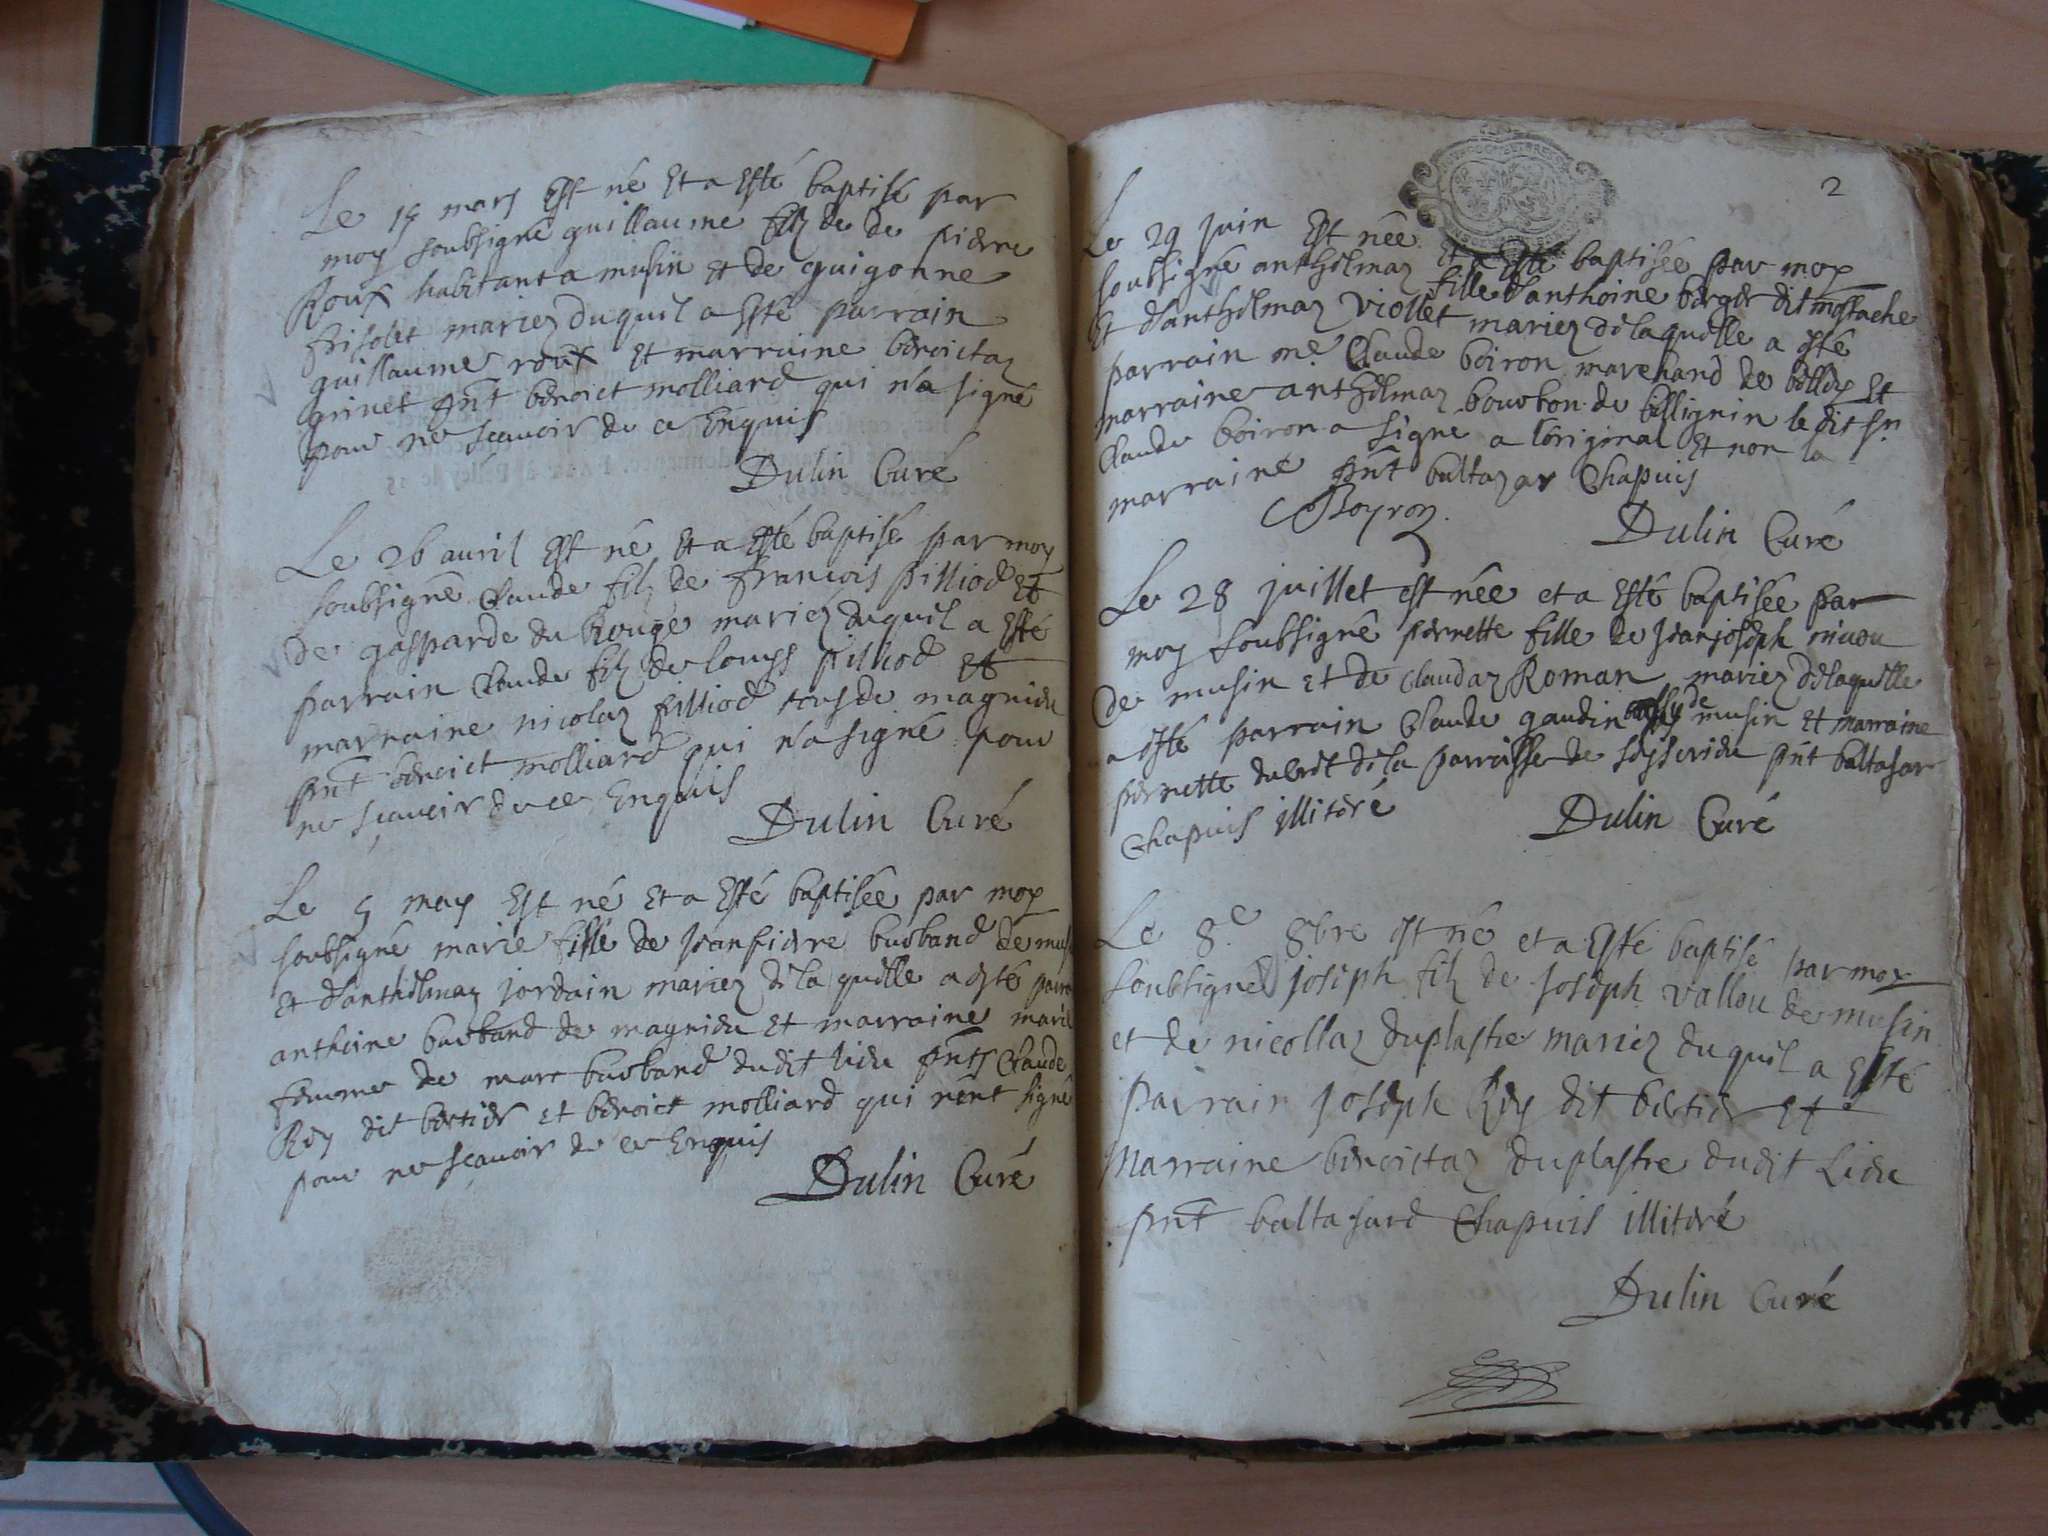 Le 15 mars Est né Et a Esté baptisé par
moy soubsigné guillaume filz de de pierre
Roux habitant a musin et de guigonne
frisolet mariez duquil a Esté parrain
guillaume roux Et marraine benoictaz
ninet pñt benoict molliard qui n'a signé
pour ne sçavoir de ce Enquis
Dulin Curé
Le 26 auril Est né Et a Esté baptisé par moy
soubsigné Claude filz de francois pilliod Et
de gasparde du Rouge mariez duquil a Esté
parrain Claude filz de louys pilliod et
marraine nicolaz filliod tous de magnieu
pñt benoict molliard qui n'a signé pour
ne sçauoir de ce Enquis
Dulin Curé
Le 5 may Est né Et a Esté baptisée par moy
soubsigné marie fille de Jeanpierre burband de mus
Et d'anthelmaz jordain mariez de la quelle a esté parra
anthoine burband de magnieu Et marraine marie
femme de marc burband dudit lieu pñts Claude
Rey dit bertier et benoict molliard qui n'ont signé
pour ne sçauoir de ce Enquis
Dulin Curé
2
Le 29 juin Est née Et a Esté baptisée par moy
soubsigné anthelmaz fille d'anthoine berger dit mostache
Et d'anthelmaz viollet mariez de laquelle a esté
parrain me Claude boiron marchand de belley Et
marraine anthelmaz bourbon de billignin le dit sr
Claude boiron a signé a l'original Et non la
marraine pñt baltazar Chapuis
CBoyron
Dulin Curé
Le 28 juillet est née et a Esté baptisée par
moy soubsigné pernette fille de Jeanjoseph
de musin et de claudaz Roman mariez de laquelle
a esté parrain Claude gaudin de musin et marraine
pernette de la parroisse de pñt baltasar
Chapuis illiteré
Dulin Curé
Le 8e 8bre est né et a Esté baptisé par moy
soubsigné joseph filz de joseph vallou de musin
et de nicollaz duplastre mariez duquil a Esté
parrain joseph Rey dit bertier et
marraine benoictaz duplastre dudit Lieu
pñt baltasard Chapuis illiteré
Dulin Curé